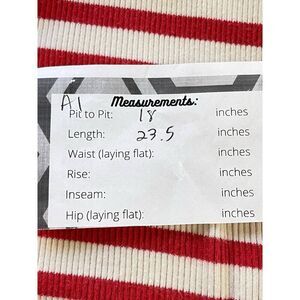 A1
Measurements:
Pit to Pit: 18 inches
Length: 23.5 inches
Waist (laying flat): inches
Rise: inches
Inseam: inches
Hip (laying flat): inches